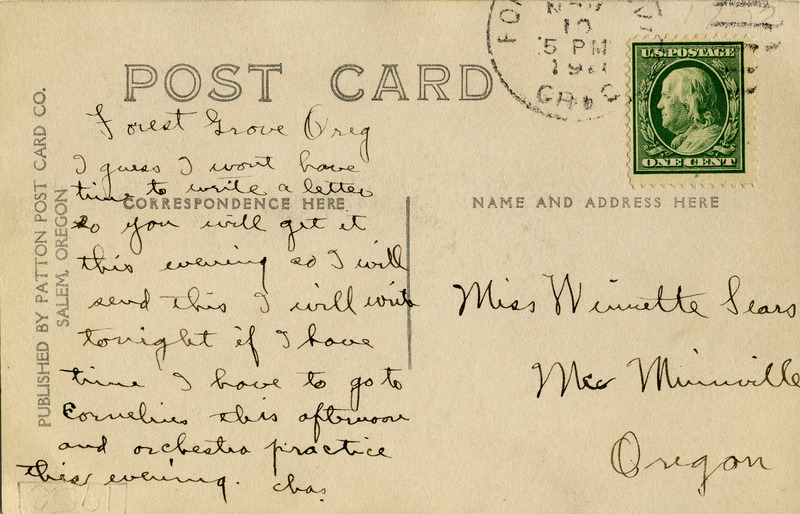 POST CARD
PUBLISHED BY PATTON POST CARD CO.
SALEM, OREGON
Forest Grove Oreg
I guess I wont have
time to write a letter
CORRESPONDENCE HERE
so you will get it
this evening so I will
send this I will write
tonight if I have
time I have to go to
Cornelius this afternoon
and orchestra practice
this evening. Chas.
10
5 PM
U.S. POSTAGE
ONE CENT
NAME AND ADDRESS HERE
Miss Winnette Sears
Mc Minnville
Oregon